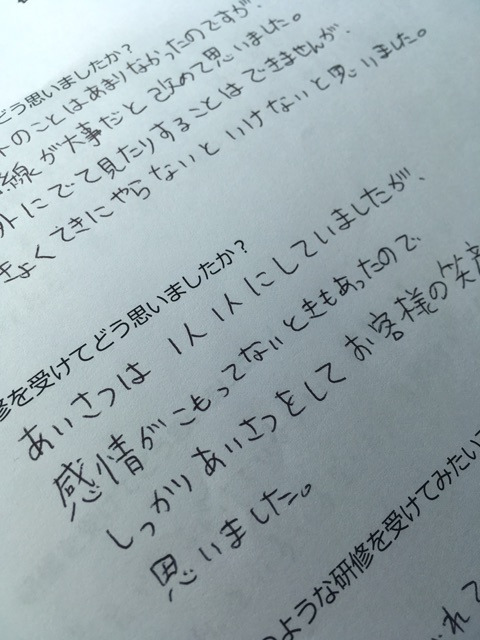 どう思いましたか?
トのことはあまりなかったのですが、
線が大事だと改めて思いました。
外にでて見たりすることはできませんが、
きょくてきにやらないといけないと思いました。
修を受けてどう思いましたか?
あいさつは1人1人にしていましたが、
感情がこもってないときもあったので
しっかりあいさつをしてお客様の笑
思いました。
のような研修を受けてみたい
れて